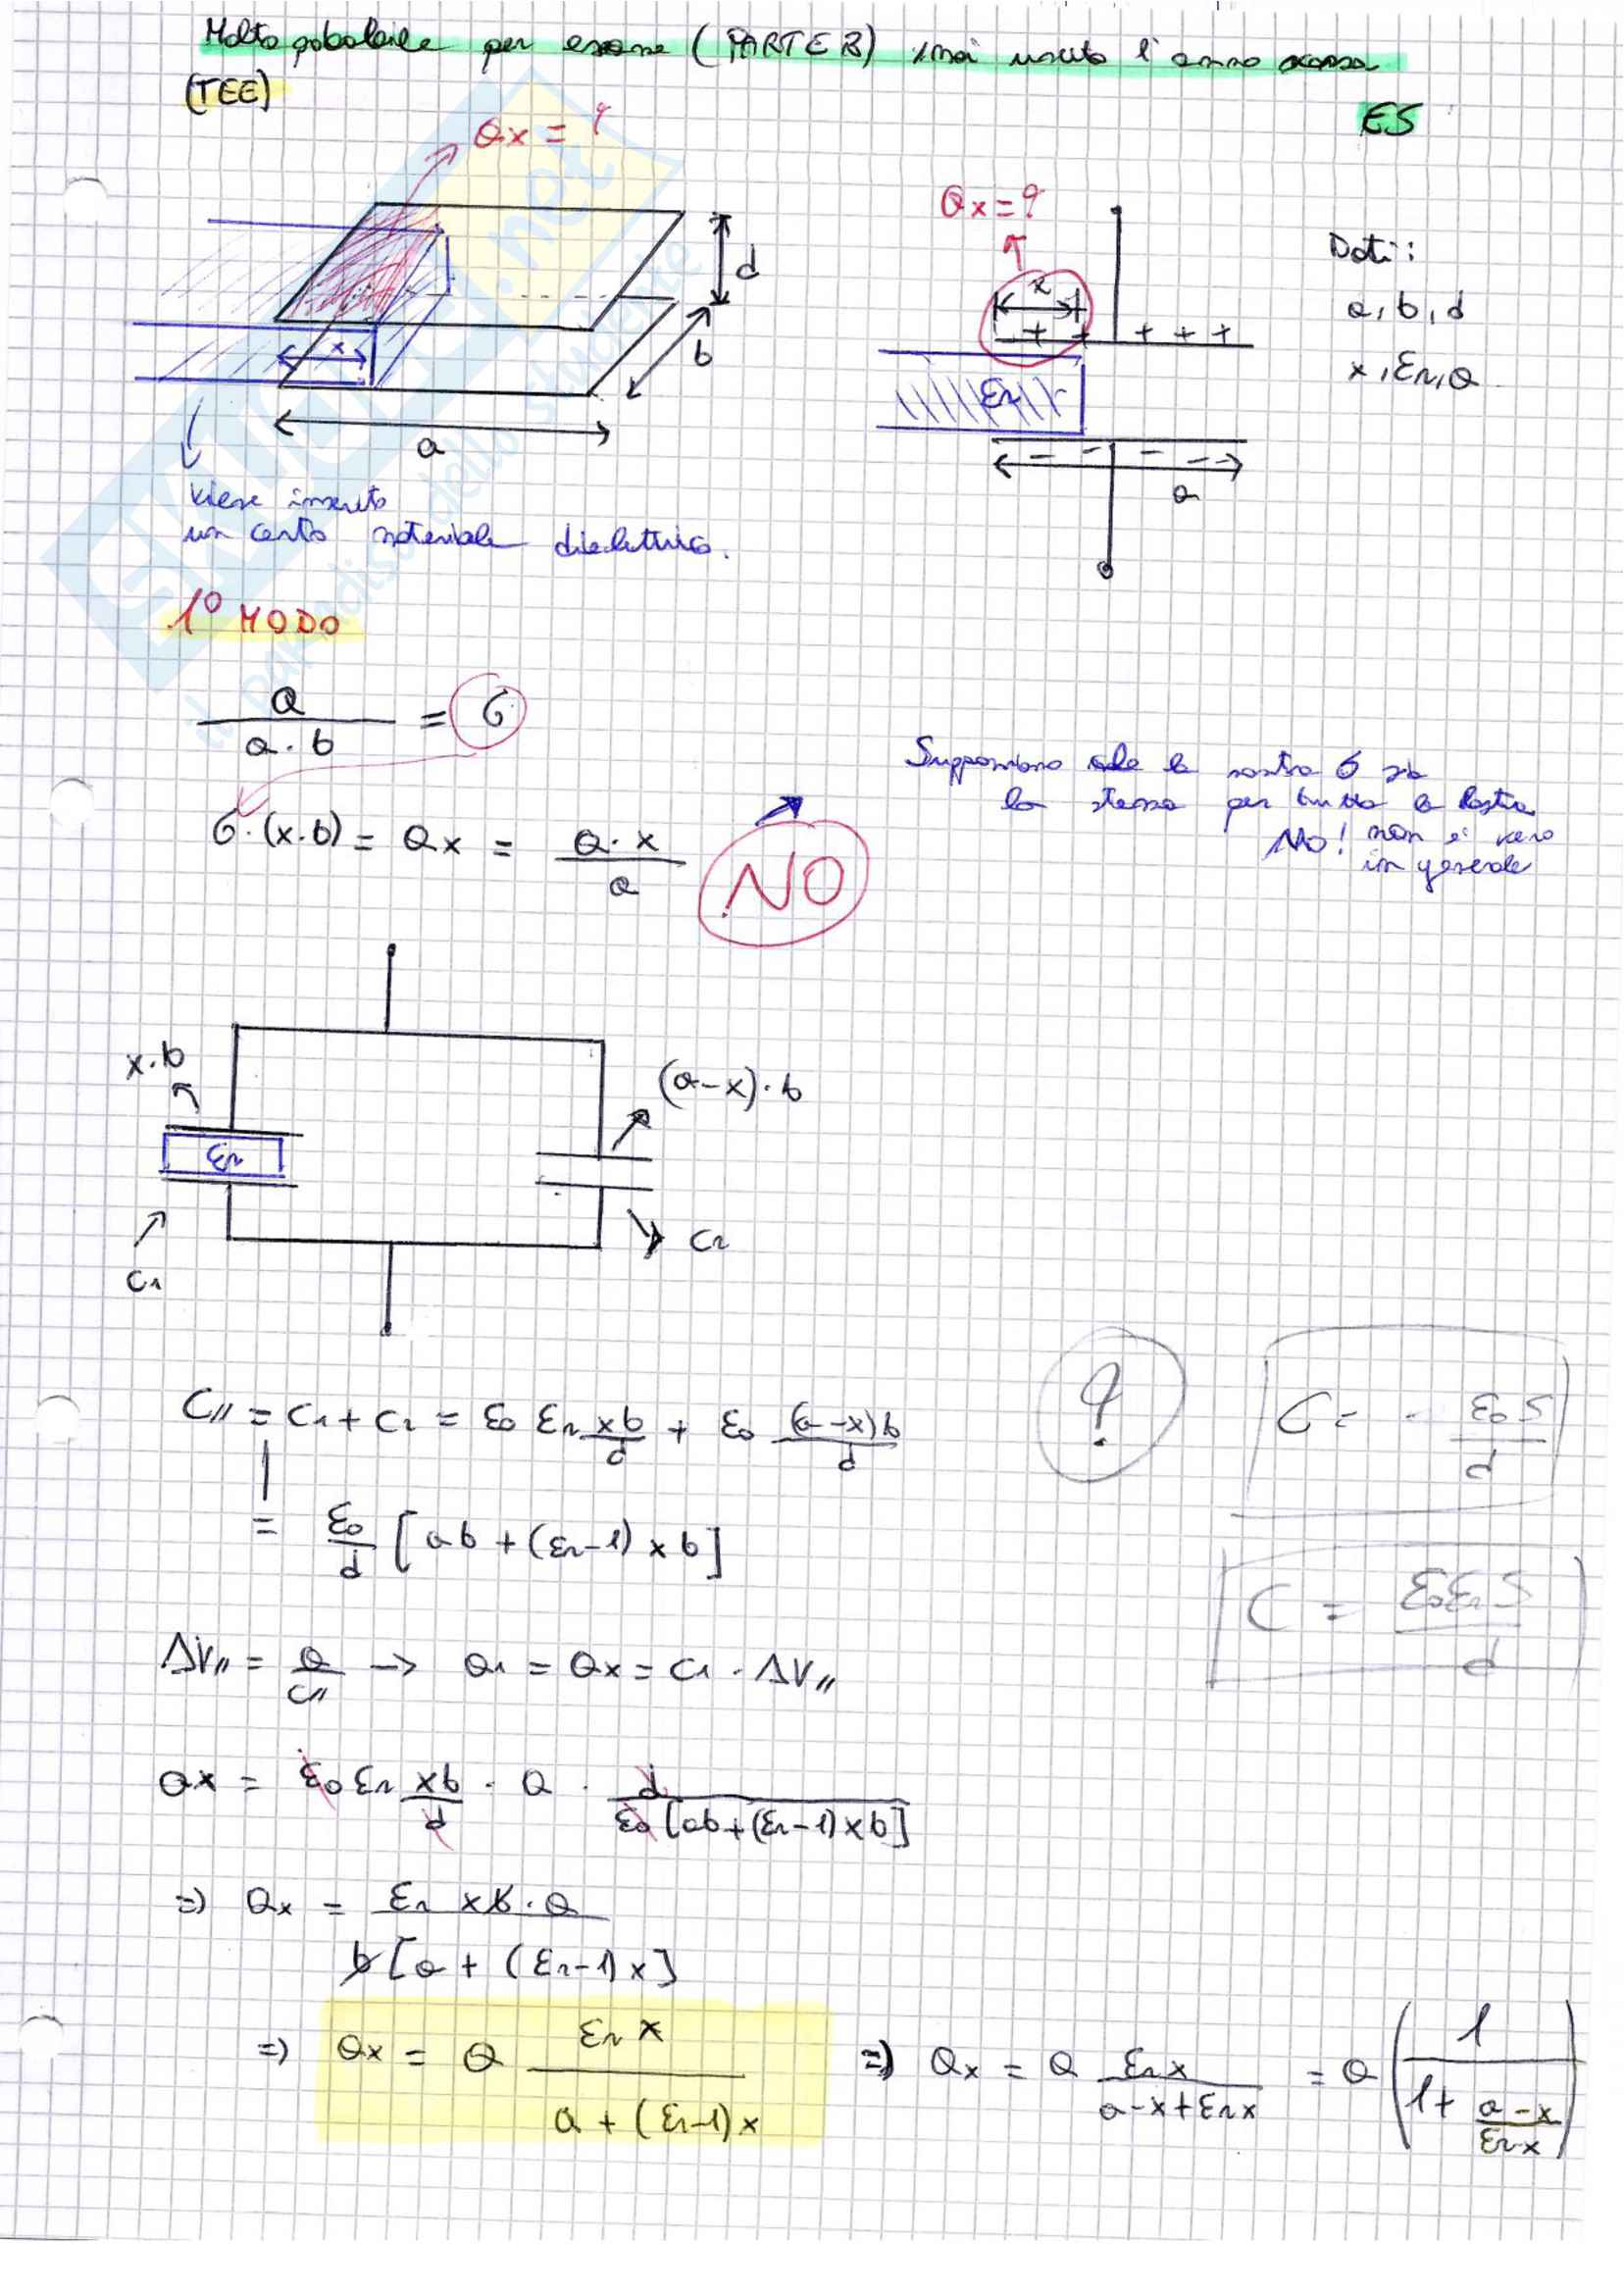 Molto probabile per esame (PARTE B) mai uscito l'anno scorso
(TEE)
ES
Qx = ?
d
b
x
a
viene inserito
un certo materiale dielettrico.
Qx = ?
x
+ + + + +
εr
- - - - -
a
Dati:
a, b, d
x, εr, Q
1° MODO
Q / (a · b) = σ
σ · (x·b) = Qx = Q · x / a
NO
Supponiamo che la nostra σ sia
la stessa per tutta la lastra
NO! non è vero
in generale
x·b
(a-x)·b
εr
C1
C2
C// = C1 + C2 = ε0 εr xb/d + ε0 (a-x)b/d
= ε0/d [ab + (εr-1) x b]
?
C = - ε0 S / d
C = ε0 εr S / d
ΔV// = Q/C// → Q1 = Qx = C1 · ΔV//
Qx = ε0 εr xb/d · Q · d / ε0 [ab + (εr-1) x b]
⇒ Qx = εr x b · Q / b [a + (εr-1) x]
⇒ Qx = Q εr x / a + (εr-1) x ⇒ Qx = Q εr x / a-x+εr x = Q (1 / 1 + a-x / εr x)
SKUOLA.net
il paradiso dello studente